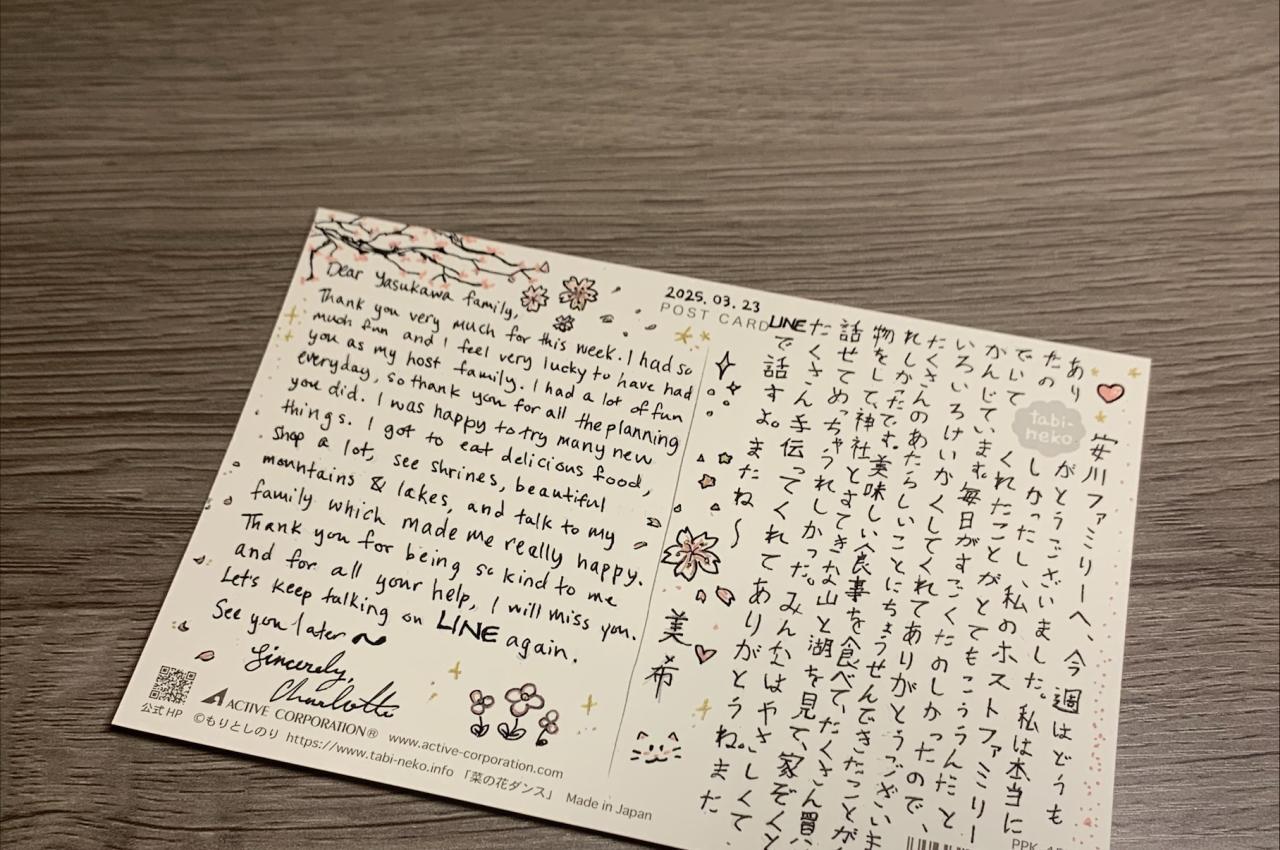 Dear Yasukawa family,
Thank you very much for this week. I had so
much fun and I feel very lucky to have had
you as my host family. I had a lot of fun
everyday, so thank you for all the planning
you did. I was happy to try many new
things. I got to eat delicious food,
shop a lot, see shrines, beautiful
mountains & lakes, and talk to my
family which made me really happy.
Thank you for being so kind to me
and for all your help, I will miss you.
Let's keep talking on LINE again.
See you later~
Sincerely,
Charlotte
2025.03.23
POST CARD
tabi-
neko
安川ファミリーへ、今週はどうも
ありがとうございました。私は本当に
たのしかったし、私のホストファミリー
でいてくれたことがとてもこううんだと
かんじています。毎日がすごくたのしかったので、
いろいろけいかくしてくれてありがとうございま
たくさんのあたらしいことにちょうせんできたことが
れしかったです。美味しい食事を食べて、たくさん買
物をして、神社とすてきな山と湖を見て、家ぞくと
話せてめっちゃうれしかった。みんなはやさしくて
たくさん手伝ってくれてありがとうね。また
LINEで話すよ。またね〜
美希
公式HP
ACTIVE CORPORATION® www.active-corporation.com
©もりとしのり https://www.tabi-neko.info 「菜の花ダンス」 Made in Japan
PPK